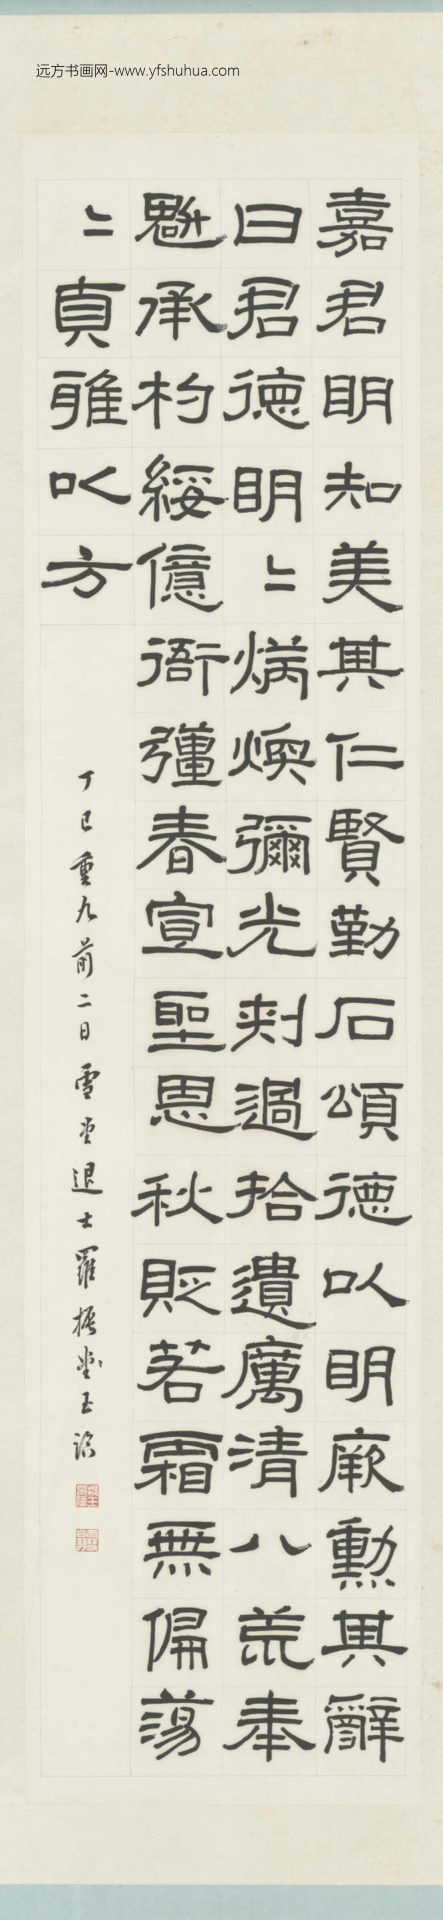 远方书画网-www.yfshuhua.com
嘉君明知美其仁賢勒石頌德以明厥勳其辭
曰君德明〻炳煥彌光刺過拾遺厲清八荒奉
魁承杓綏億衙彊春宣聖恩秋貶若霜無偏蕩
〻貞雅以方
丁巳重九前二日雪堂退士羅振玉臨